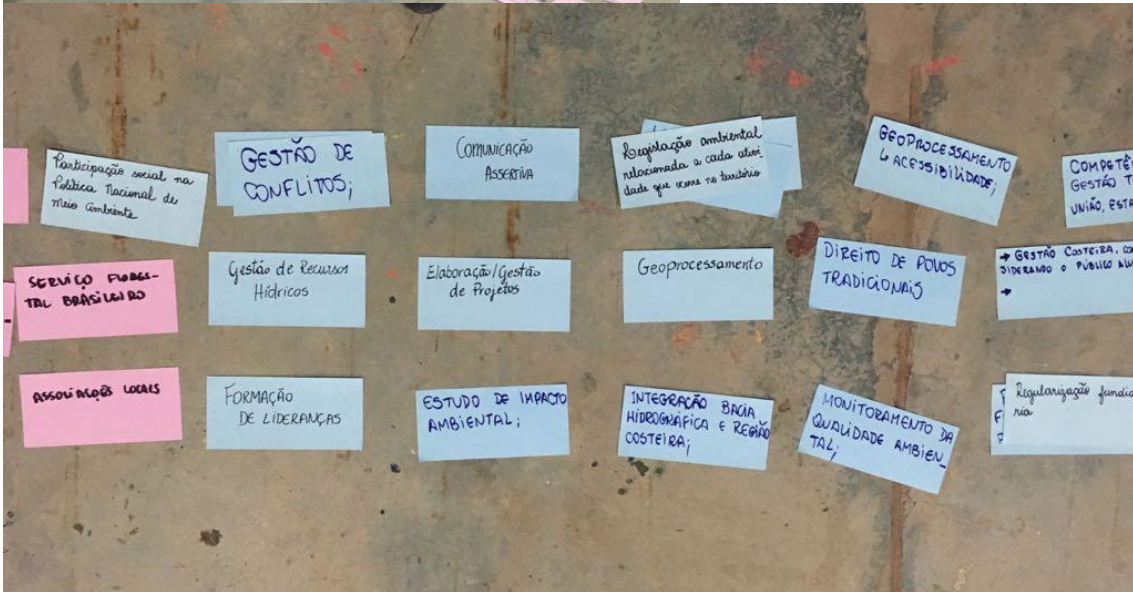 Participação social na
Política Nacional de
meio ambiente
GESTÃO DE
CONFLITOS;
COMUNICAÇÃO
ASSERTIVA
Legislação ambiental
relacionada a cada ativi
dade que ocorre no território
GEOPROCESSAMENTO
ACESSIBILIDADE;
COMPETÊ
GESTÃO T
UNIÃO, ESTA
SERVIÇO FLORES-
TAL BRASILEIRO
Gestão de Recursos
Hídricos
Elaboração/Gestão
de Projetos
Geoprocessamento
DIREITO DE POVOS
TRADICIONAIS
→ GESTÃO COSTEIRA, CON
SIDERANDO O PÚBLICO
→
ASSOCIAÇÕES LOCAIS
FORMAÇÃO
DE LIDERANÇAS
ESTUDO DE IMPACTO
AMBIENTAL;
INTEGRAÇÃO BACIA
HIDROGRÁFICA E REGIÃO
COSTEIRA;
MONITORAMENTO DA
QUALIDADE AMBIEN_
TAL;
Regularização fundiá
ria